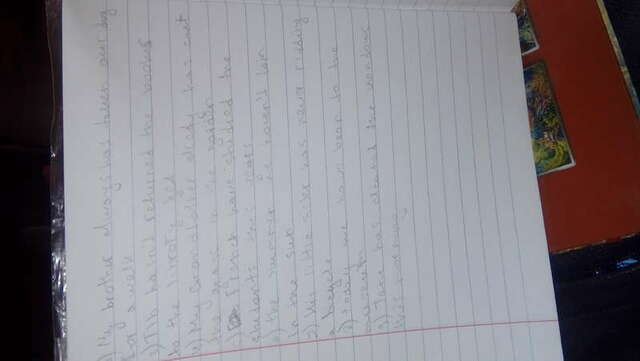 ) My brother always has taken our dog
for a walk
3) Tib hasn't returned the books
to the library yet
4) My Grandfather alredy has cuet
the grass in the
) French have studied the
students this year
) the summer I haven't lain
in the sun
7) his little sister has never ridding
a bicycle
8) today we have bear to the
museum
9) Jane has cleaned the windows
this morning